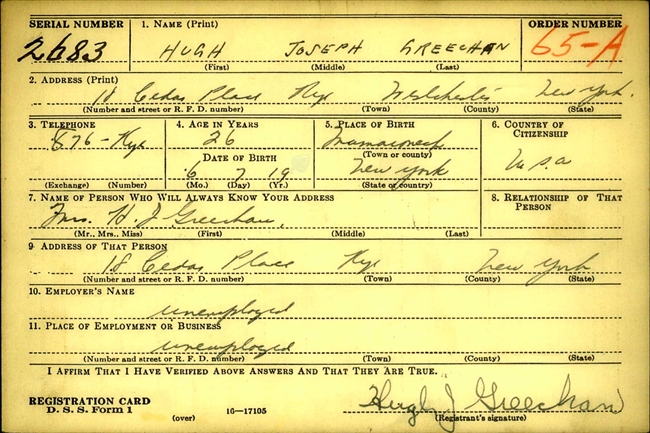 SERIAL NUMBER 1. NAME (Print) ORDER NUMBER
2683 HUGH JOSEPH GREECHAN 65-A
(First) (Middle) (Last)
2. ADDRESS (Print)
18 Cedar Place Rye Westchester New York.
(Number and street or R. F. D. number) (Town) (County) (State)
3. TELEPHONE 4. AGE IN YEARS 5. PLACE OF BIRTH 6. COUNTRY OF CITIZENSHIP
876-Rye 26 Mamaroneck
(Town or county)
DATE OF BIRTH
6 7 19 New York U.S.A
(Exchange) (Number) (Mo.) (Day) (Yr.) (State or country)
7. NAME OF PERSON WHO WILL ALWAYS KNOW YOUR ADDRESS 8. RELATIONSHIP OF THAT PERSON
Mrs. H. J Greechan,
(Mr., Mrs., Miss) (First) (Middle) (Last)
9. ADDRESS OF THAT PERSON
18 Cedar Place Rye New York
(Number and street or R. F. D. number) (Town) (County) (State)
10. EMPLOYER'S NAME
unemployed
11. PLACE OF EMPLOYMENT OR BUSINESS
unemployed
(Number and street or R. F. D. number) (Town) (County) (State)
I AFFIRM THAT I HAVE VERIFIED ABOVE ANSWERS AND THAT THEY ARE TRUE.
Hugh J Greechan
REGISTRATION CARD
D. S. S. Form 1 (over) 16-17105 (Registrant's signature)